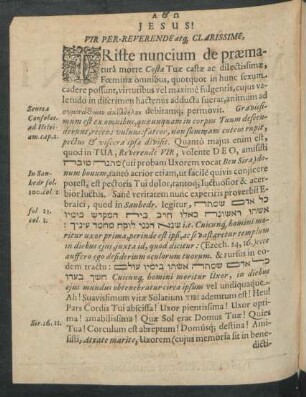 JESUS!
VIR PER-REVERENDE atq; CLARISSIME,
TRiste nuncium de præma-
turâ morte Costæ Tuæ castæ ac dilectissimæ,
Fœminæ omnibus, quotquot in hunc sexum
cadere possunt, virtutibus vel maximè fulgentis, cujus va-
letudo in discrimen hactenus adducta fuerat, animum ad
debitamq; permovit. Gravissi-
mum est ex omnibus, quæ unquam in corpus Tuum descen-
derunt, recens vulnus; fateor, non summam cutem rupit,
pectus & viscera ipsa divisit. Quantò majus enim est,
quod in TUA, Reverende VIR, volente DEO, amissi
(uti probam Uxorem vocat Ben Sira) do-
num bonum, tantò acrior etiam, quod quivis facilè conjicere
potest, est pectoris Tui dolor, tantoq; luctuosior & acer-
bior luctus. Sanè veritatem nunc experiris proverbii E-
braici, quod in Sanhedr. legitur, כל אדם שמתה
אשתו ראשונה כאלו חרב בית המקדש בימיו
i.e. Cuicunq; homini mo-
ritur uxor prima, perinde est ipsi, ac si vastaretur templum
in diebus ejus, juxta id, quod dicitur: (Ezech. 24, 16.) ecce
auffero ego desiderium oculorum tuorum. & rursus in eo-
dem tractu: כל אדם שמתה אשתו בימיו עולם
חשך בעדו Cuicunq; homini moritur Uxor, in diebus
ejus mundus obtenebratur circa ipsum vel undiquaque.
Ah! Suavissimum vitæ Solatium Tibi ademtum est! Heu!
Pars Cordis Tui abscissa! Uxor pientissima! Uxor opti-
ma! amabilissima! Quæ Sol erat Domus Tuæ! Quies
Tua! Corculum est abreptum! Domusq; destina! Ami-
sisti, Ataxate marite, Uxorem (cujus memoria sit in bene-
dicti-
Seneca
Consolat.
ad Helvi-
am. cap. 3.
In San-
hedr fol.
col. 1.
fol. 22.
col. 1.
Sir. 26. 21.